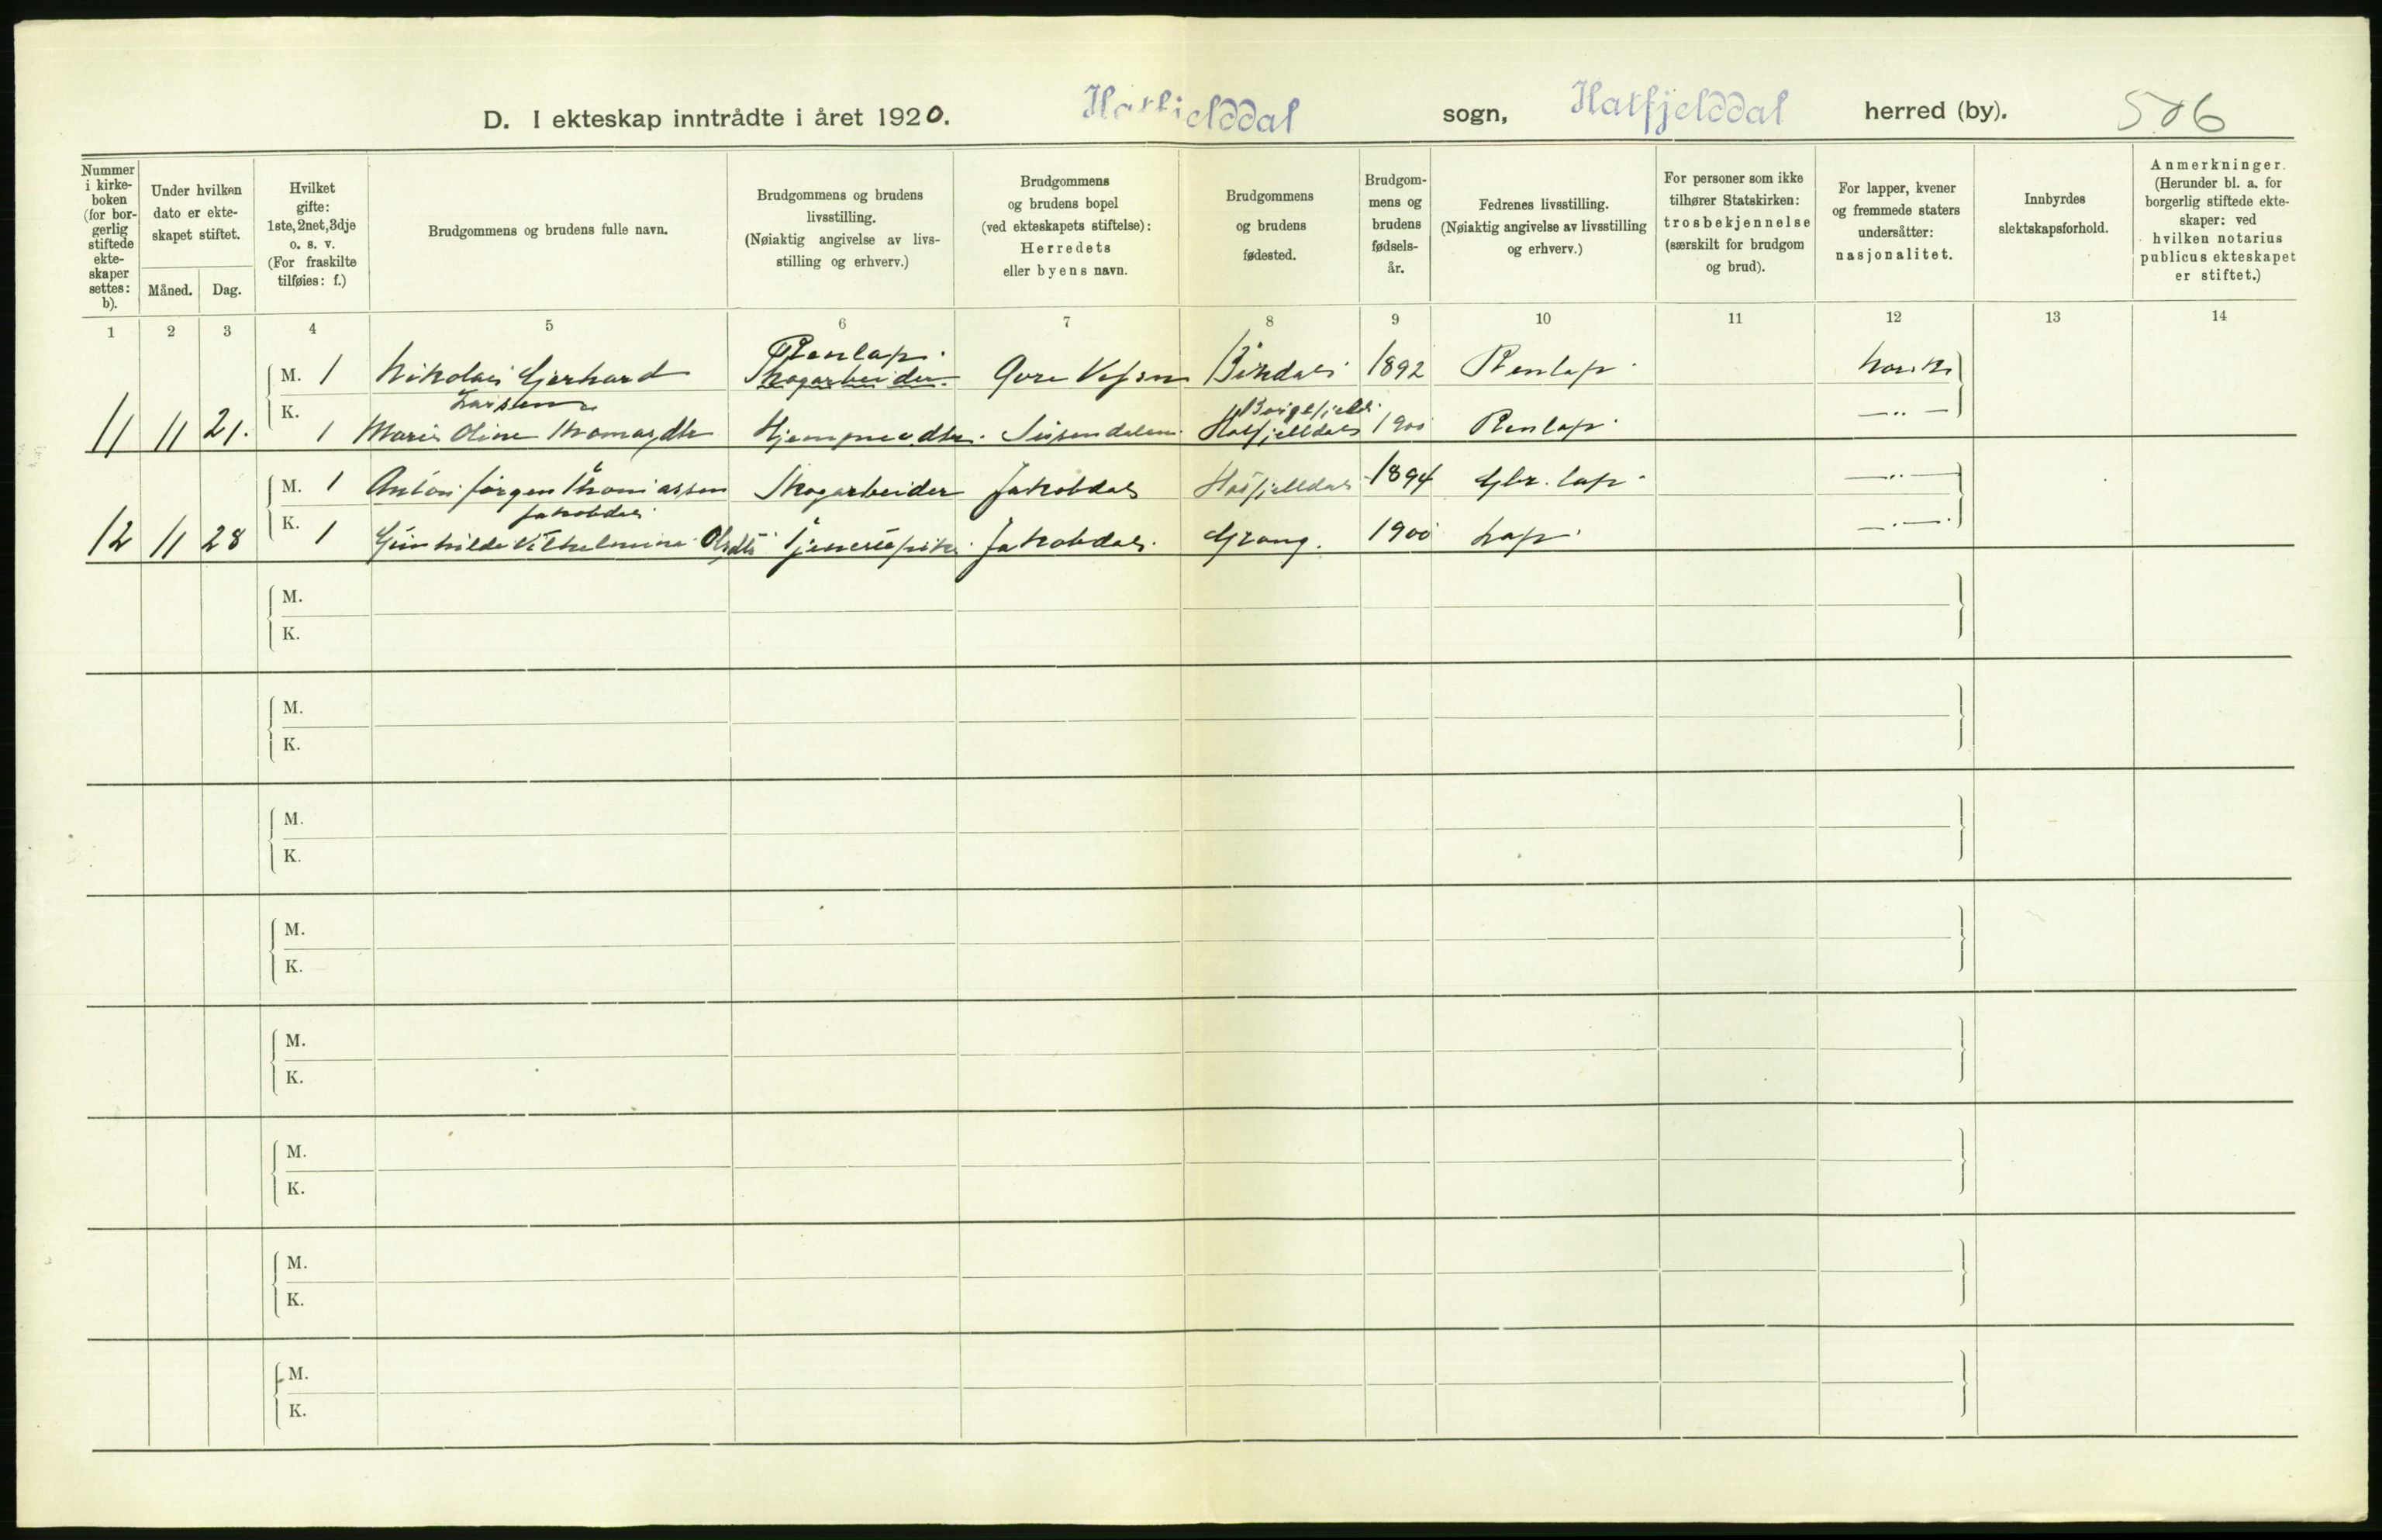 D. I ekteskap inntrådte i året 1920. Hatfjelddal sogn, Hatfjelddal herred (by). 586
Nummer i kirke- boken (for bor- gerlig stiftede ekte- skaper settes: b).
Under hvilken dato er ekte- skapet stiftet.
Måned. Dag.
Hvilket gifte: 1ste, 2net, 3dje o. s. v. (For fraskilte tilføies: f.)
Brudgommens og brudens fulle navn.
Brudgommens og brudens livsstilling. (Nøiaktig angivelse av livs- stilling og erhverv.)
Brudgommens og brudens bopel (ved ekteskapets stiftelse): Herredets eller byens navn.
Brudgommens og brudens fødested.
Brudgom- mens og brudens fødsels- år.
Fedrenes livsstilling. (Nøiaktig angivelse av livsstilling og erhverv.)
For personer som ikke tilhører Statskirken: trosbekjennelse (særskilt for brudgom og brud).
For lapper, kvener og fremmede staters undersåtter: nasjonalitet.
Innbyrdes slektskapsforhold.
Anmerkninger. (Herunder bl. a. for borgerlig stiftede ekte- skaper: ved hvilken notarius publicus ekteskapet er stiftet.)
1 2 3 4 5 6 7 8 9 10 11 12 13 14
Renlap.
M. 1 Nikolai Gjerhard Skogarbeider. Vefsn Bindal 1892 Renlap. norsk
Larsen Børgefjeld
11 11 21. K. 1 Marie Oline Thomasdtr Hjemmeodtr. Susendalen Hatfjelldal 1900 Renlap. — „ —
M. 1 Anton Jørgen Thomassen Skogarbeider Jakobdal Hatfjelldal 1894 Gbr. lap. — „ —
Jakobdal
12 11 28 K. 1 Gunhilde Vilhelmine Olsdtr Tjenestepike Jakobdal. Grong. 1900 Lap. — „ —
M.
K.
M.
K.
M.
K.
M.
K.
M.
K.
M.
K.
M.
K.
M.
K.